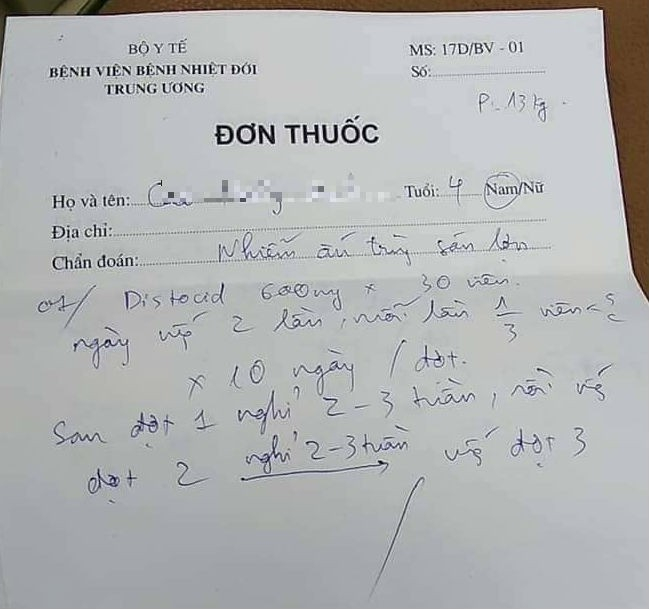 BỘ Y TẾ
BỆNH VIỆN BỆNH NHIỆT ĐỚI
TRUNG ƯƠNG
MS: 17D/BV - 01
Số:
P: 13 kg.
ĐƠN THUỐC
Họ và tên: Tuổi: 4 Nam/Nữ
Địa chỉ:
Chẩn đoán: Nhiễm ấu trùng sán lợn
01/ Distocid 600mg x 30 viên.
ngày uống 2 lần, mỗi lần 1/3 viên
x 10 ngày / đợt.
Sau đợt 1 nghỉ 2-3 tuần, rồi uống
đợt 2 nghỉ 2-3 tuần uống đợt 3